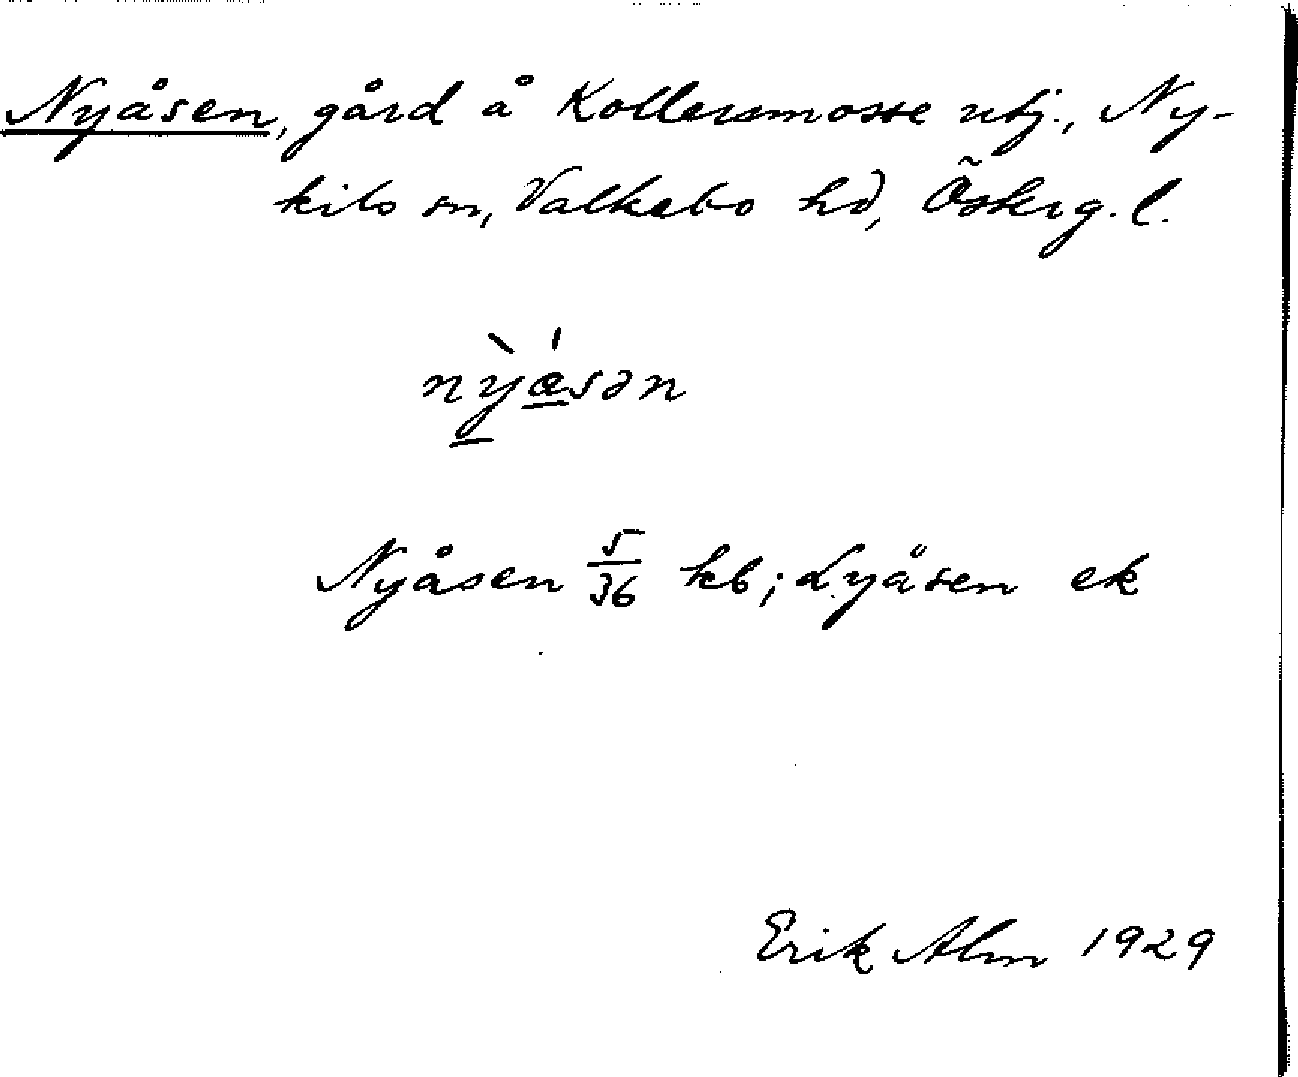 Nyåsen, gård å Kollersmosse utj., Ny-
kils sn, Valkebo hd, Österg. l.
nỳǻsən
Nyåsen 5/36 kb; Lyåsen ek
Erik Alm 1929